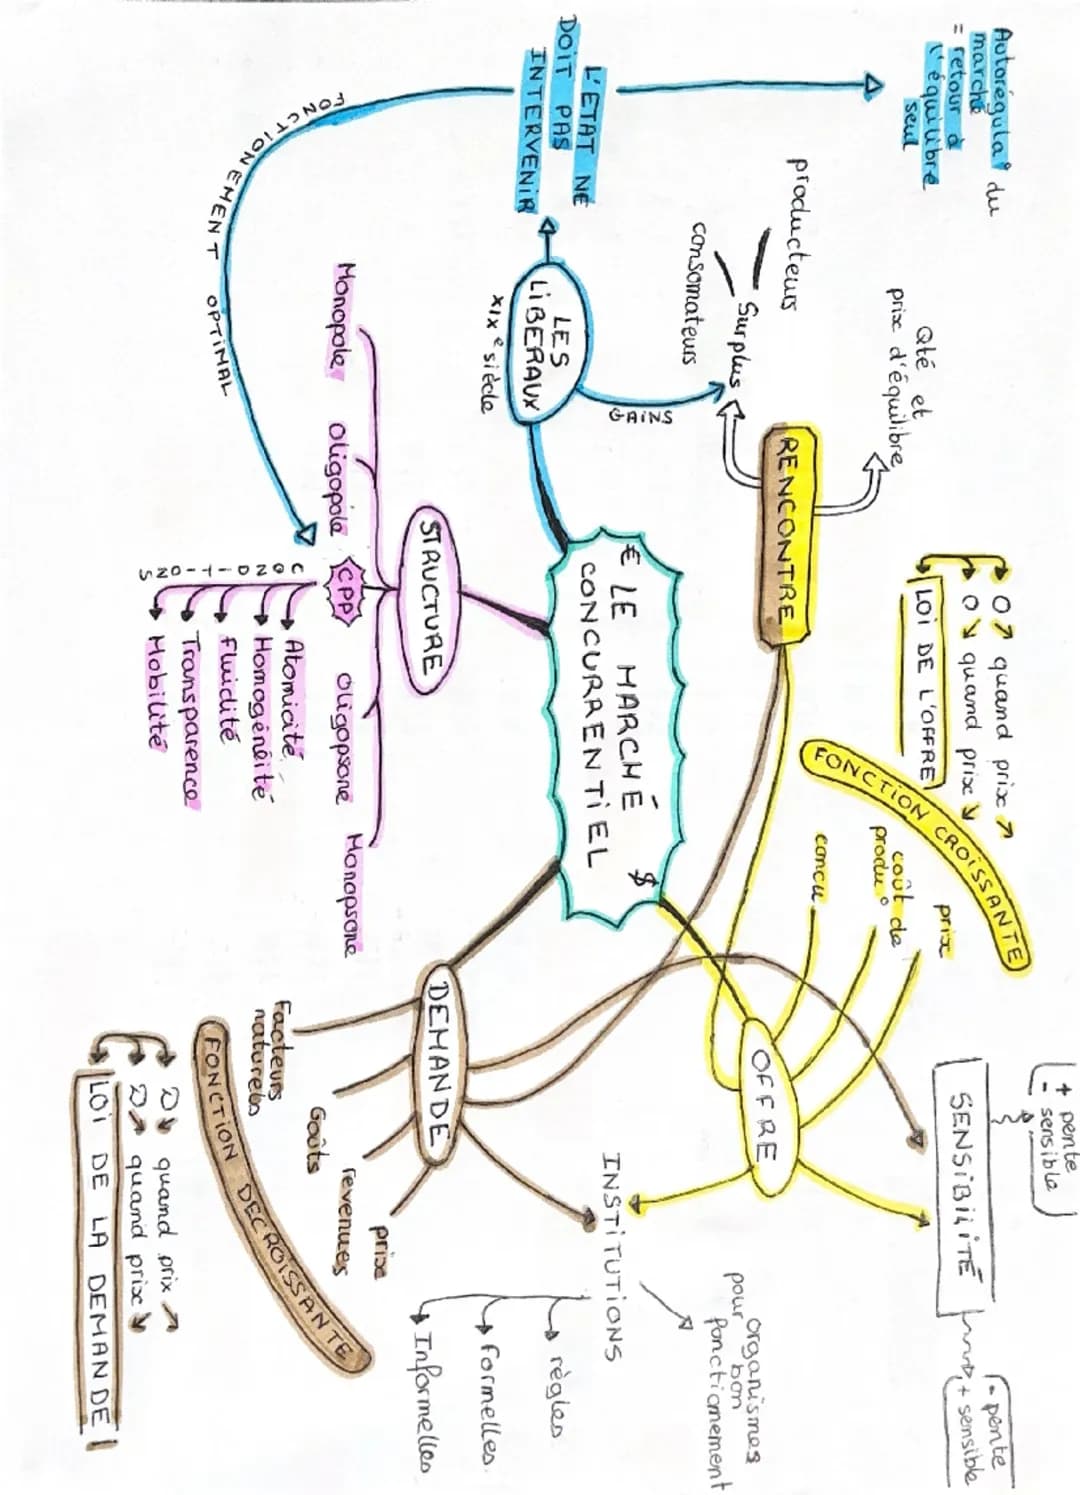 € LE MARCHÉ
CONCURRENTIEL $
LES
LIBERAUX
XIXe siècle
L'ÉTAT NE
DOIT PAS
INTERVENIR
Autorégula° du
marché
= retour à
l'équilibre
seul
FONCTIONEMENT OPTIMAL
GAINS
Surplus
producteurs
consomateurs
RENCONTRE
Qté et
prix d'équilibre
STRUCTURE
Monopole
Oligopole
CPP
Oligopsone
Monopsone
CONDITIONS
Atomicité
Homogénéité
Fluidité
Transparence
Mobilité
O↗ quand prix ↗
O ↘ quand prix ↘
LOI DE L'OFFRE
FONCTION CROISSANTE
prix
coût de
produ°
concu
OFFRE
SENSIBILITÉ
+ pente
- sensible
- pente
+ sensible
INSTITUTIONS
organismes
pour bon
fonctionnement
règles
formelles
Informelles
DEMANDE
prix
revenues
Goûts
Facteurs
naturels
FONCTION DECROISSANTE
D↘ quand prix ↗
D↗ quand prix ↘
LOI DE LA DEMANDE